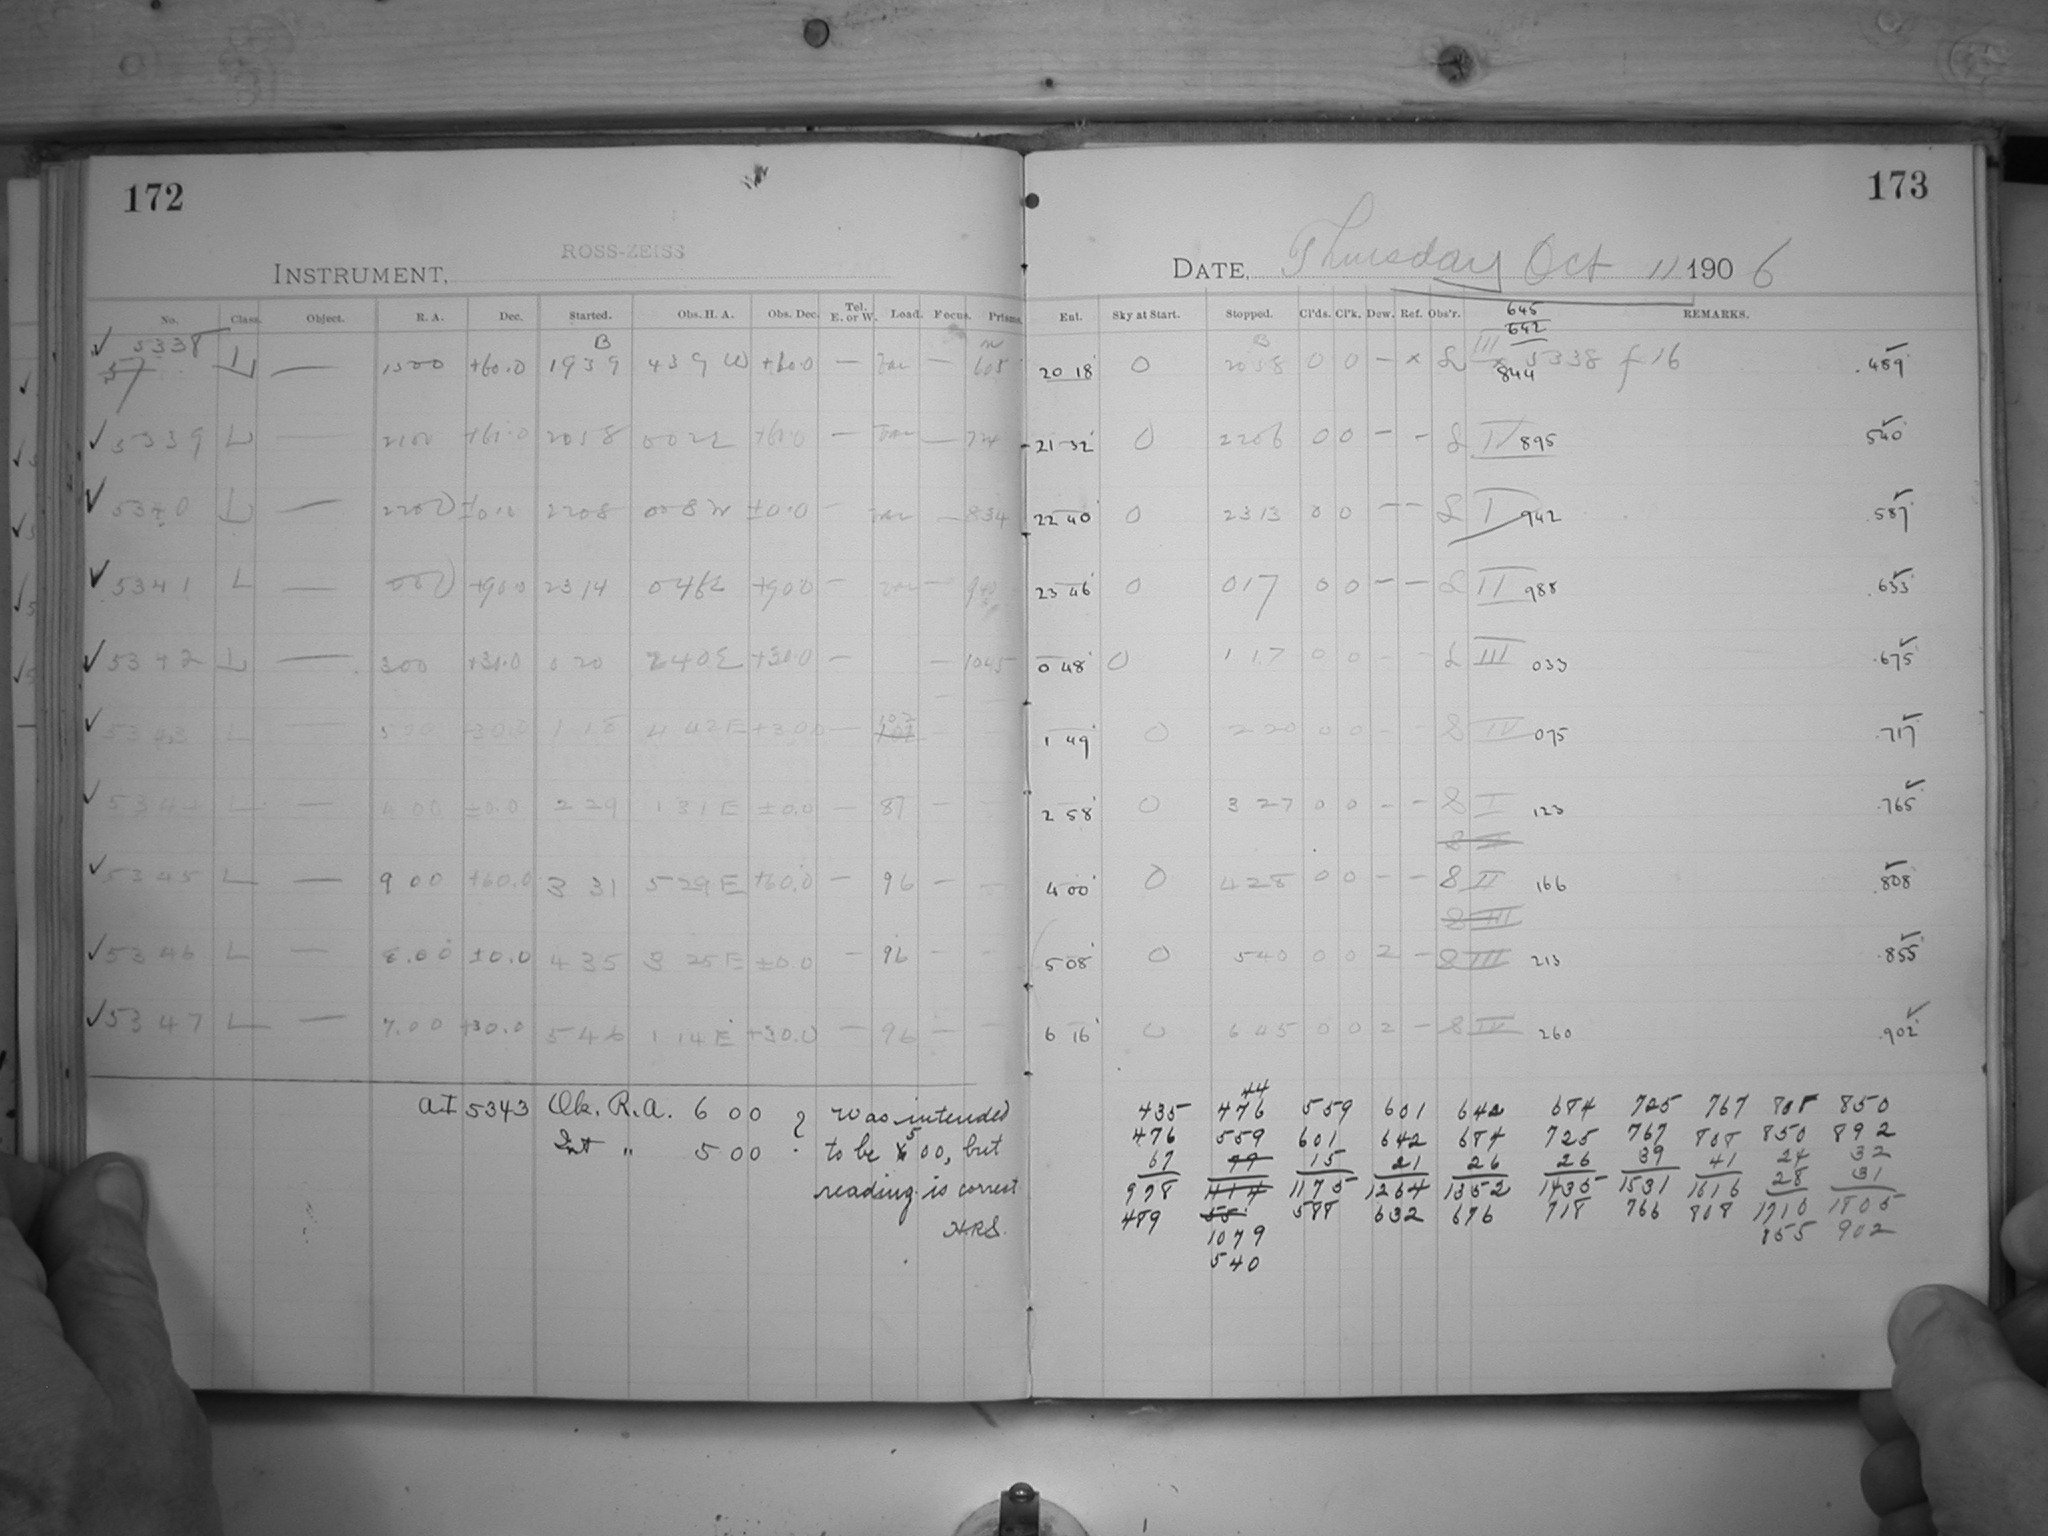 172
173
ROSS-ZEISS
INSTRUMENT,
DATE, Thursday Oct 11 1906
No. Class. Object. R. A. Dec. Started. Obs. H. A. Obs. Dec. Tel. E. or W. Load. Focus. Prisms.
Ent. Sky at Start. Stopped. Cl'ds. Cl'k. Dew. Ref. Obs'r. REMARKS.
645
642
✓ 5338 L — 1500 +60.0 1939 439 W +60.0 — —
20 18 0 2058 0 0 — × III 5338 f 16 .489
844
✓ 5339 L — 2100 +60.0 2058 002E +60.0 — —
21 32 0 2206 0 0 — - IV 895 540
✓ 5340 L — 2200 ±0.0 2208 008 W ±0.0 - — 834
22 40 0 2313 0 0 — — I 942 .587
✓ 5341 L — +90.0 2314 046E +90.0 — —
23 46 0 017 0 0 — — II 988 .633
✓ 5342 L — 300 +30.0 0 20 240E +30.0 — — 1045
0 48 0 117 0 0 - - III 033 .675
✓ 5343 L — 500 +30.0 1 18 4 42E +30.0 — 102
1 49 0 220 0 0 - IV 075 .717
✓ 5344 L — 4 00 ±0.0 2 29 1 31 E ±0.0 — 87 -
2 58 0 3 27 0 0 - - I 123 .765
✓ 5345 L — 9 00 +60.0 3 31 5 29 E +60.0 — 96 —
4 00 0 428 0 0 - - II 166 .808
✓ 5346 L — 8.00 ±0.0 4 35 3 25 E ±0.0 — 96 -
5 08 0 540 0 0 2 - III 213 .855
✓ 5347 L — 7.00 +30.0 5 46 1 14 E +30.0 — 96 -
6 16 0 645 0 0 2 - IV 260 .902
AI 5343 Ob. R.A. 6 00 was intended
Int " 5 00 to be 5 00, but
reading is correct
HRS.
44
435 476 559 601 642 684 725 767 808 850
476 559 601 642 684 725 767 808 850 892
67 15 21 26 26 39 41 24 32
28 31
978 1175 1264 1352 1435 1531 1616 1710 1805
489 588 632 676 718 766 808 855 902
1079
540